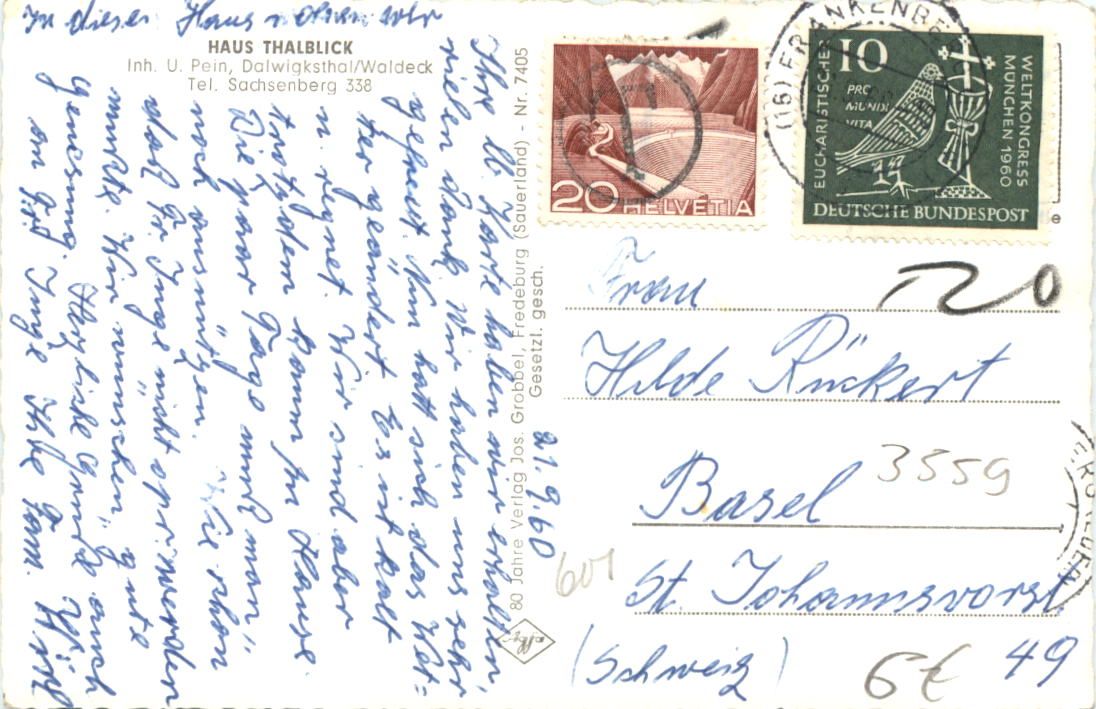 In dieser Haus wohnen wir
HAUS THALBLICK
Inh. U. Pein, Dalwigksthal/Waldeck
Tel. Sachsenberg 338
21.9.60
Ihre lb. Karte haben wir erhalten,
vielen Dank. Wir haben uns sehr
gefreut. Nun hatt sich das Wet=
ter geändert. Es ist kalt
u regnet. Wir sind aber
trotzdem kaum zu Hause.
Die paar Tage muß man
noch ausnützen. Wie schon
daß Fr. Inge nicht operi werden
mußte. Wir wünschen gute
Genesung. Herzliche Grüße auch
an Frl Inge Ihre Fam.
80 Jahre Verlag Jos. Grobbel, Fredeburg (Sauerland) - Nr. 7405
Gesetzl. gesch.
20 HELVETIA
T
(16) FRANKENBE
10
PRO
MUNDI
VITA
EUCHARISTISCHER
WELTKONGRESS
MÜNCHEN 1960
DEUTSCHE BUNDESPOST
e
20
Frau
Hilde Rückert
Basel
3559
601
St. Johannsvorst
49
(Schweiz)
6€